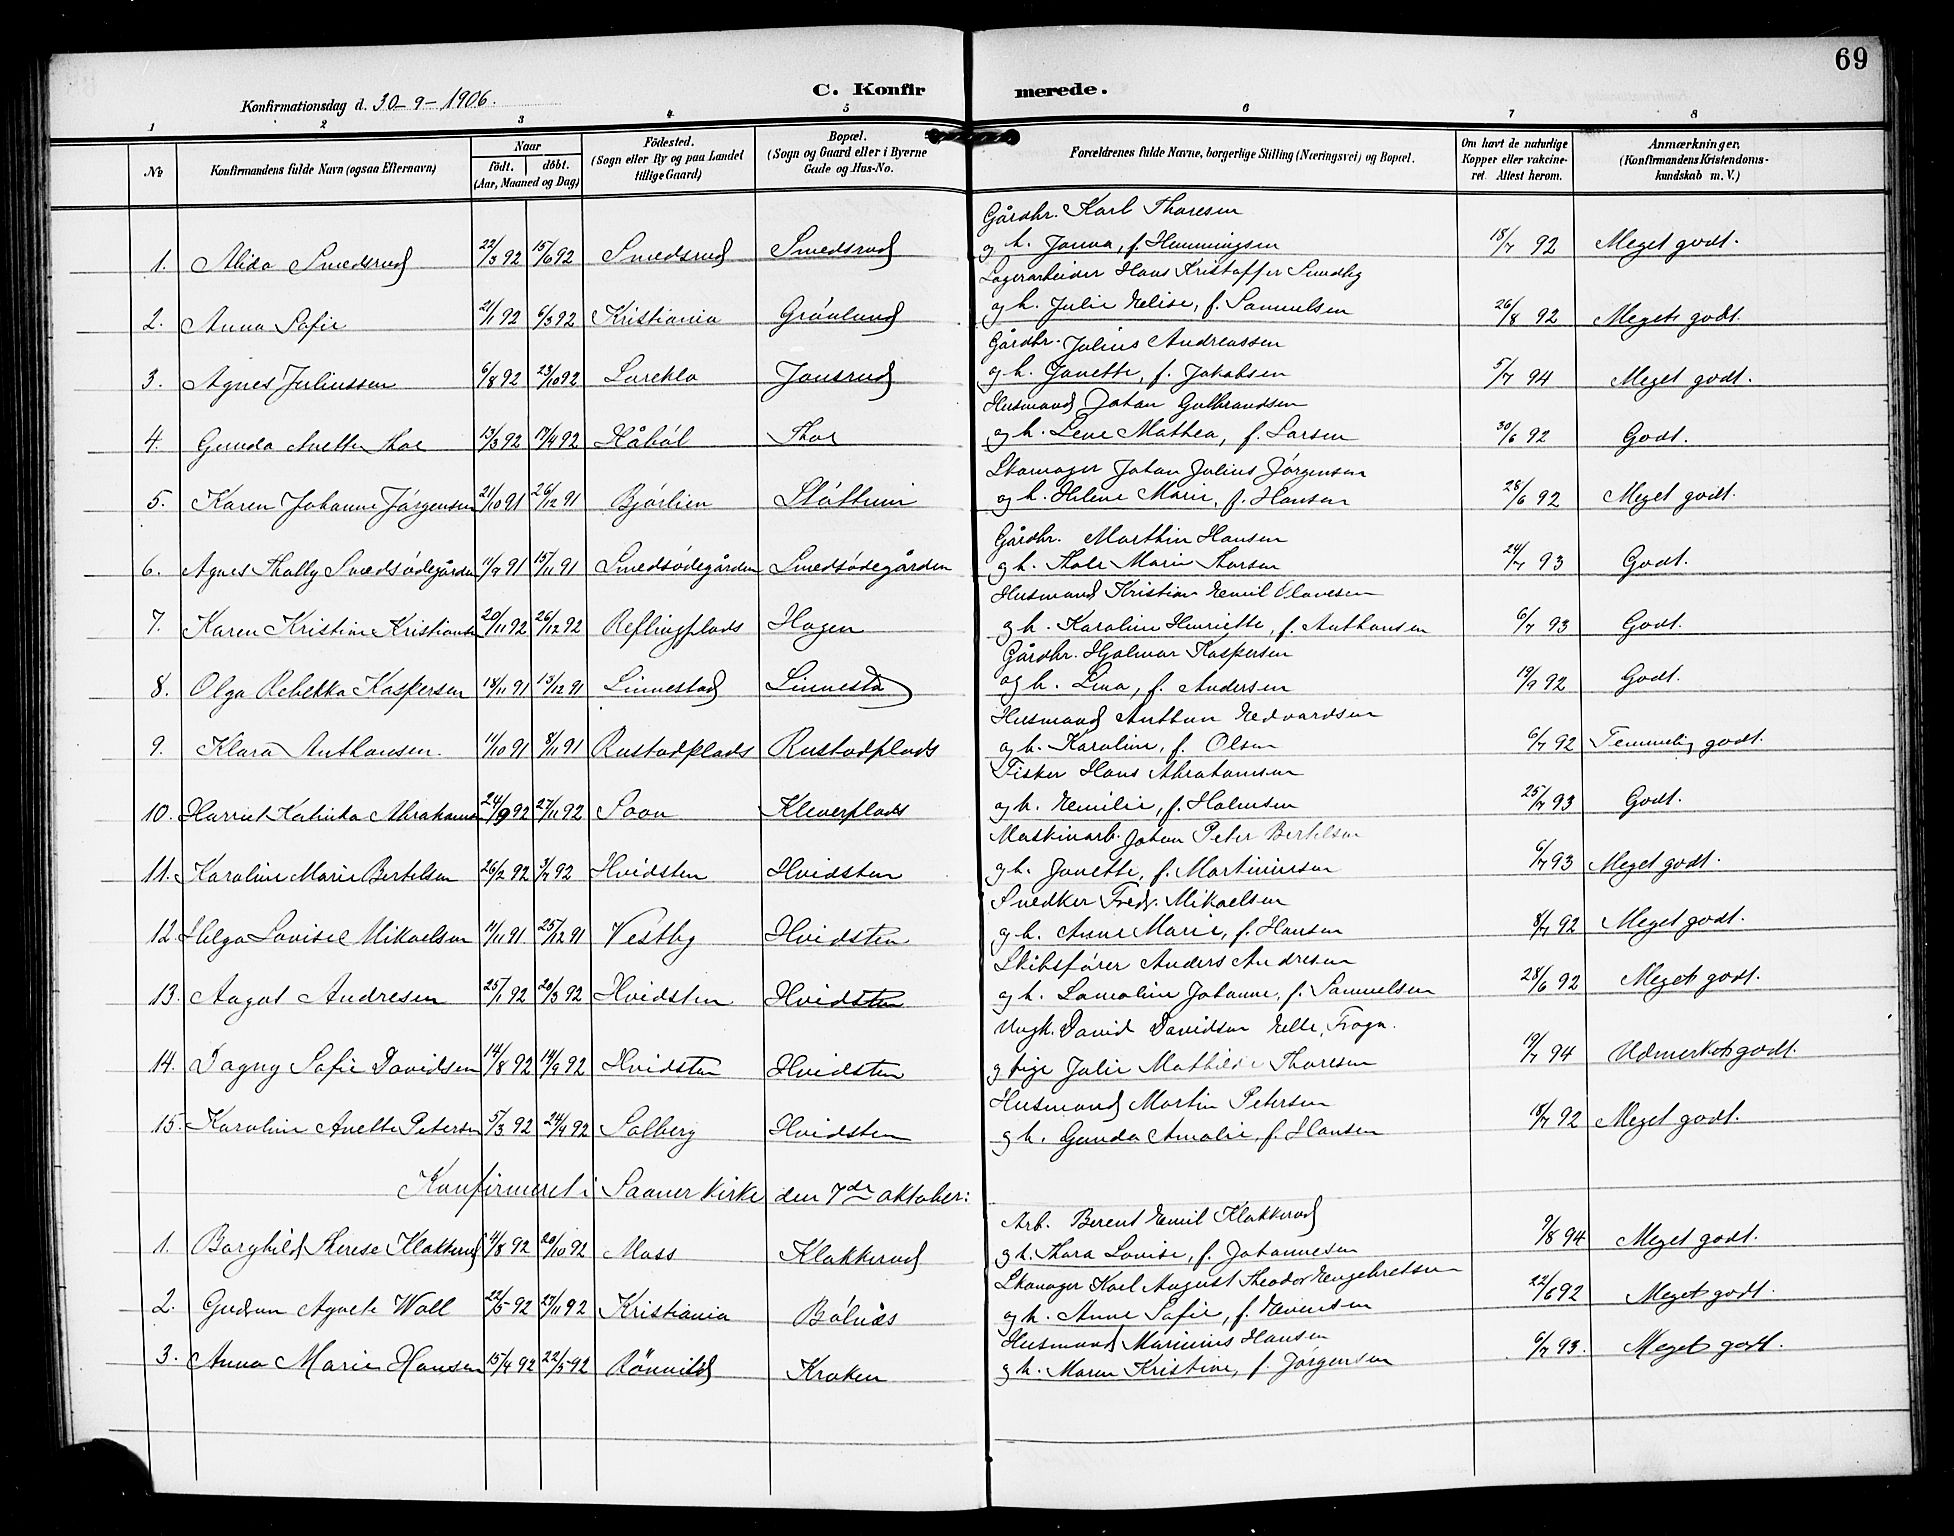 69
C. Konfirmerede.
Konfirmationsdag d. 30-9-1906.
1 2 3 4 5 6 7 8
No
Konfirmandens fulde Navn (ogsaa Efternavn)
Naar
födt. döbt.
(Aar, Maaned og Dag)
Födested.
(Sogn eller By og paa Landet
tillige Gaard)
Bopæl.
(Sogn og Gaard eller i Byerne
Gade og Hus-No.
Forældrenes fulde Navne, borgerlige Stilling (Næringsvei) og Bopæl.
Om havt de naturlige
Kopper eller vakcine-
ret. Attest herom.
Anmærkninger,
(Konfirmandens Kristendoms-
kundskab m. V.)
Gårdbr. Karl Thoresen
1. Alida Smedsrud 22/3 92 15/6 92 Smedsrud Smedsrud og h. Janna, f. Hemmingsen 18/7 92 Meget godt.
Lagerarbeider Hans Kristoffer Sundby
2. Anna Sofie 21/1 92 6/3 92 Kristiania Grönlund og h. Julie Elise, f. Samuelsen 26/8 92 Meget godt.
Gårdbr. Julius Andreassen
3. Agnes Juliussen 6/8 92 23/10 92 Jonsrud og h. Janette, f. Jakobsen 5/7 94 Meget godt.
Husmand Johan Gulbrandsen
4. Gunda Anette Thoe 13/3 92 17/4 92 Håböl Thoe og h. Lene Mathea, f. Larsen 30/6 92 Godt.
Skomager Johan Julius Jörgensen
5. Karen Johanne Jörgensen 21/10 91 26/12 91 Bjørlien Støttum og h. Helene Marie, f. Hansen 28/6 92 Meget godt.
Gårdbr. Marthin Hansen
6. Agnes Thally Smedsödegården 11/9 91 15/11 91 Smedsödegården Smedsödegården og h. Thale Marie Thorsen 24/7 93 Godt.
Husmand Kristian Emil Olavesen
7. Karen Kristine Kristiansen 20/11 92 26/12 92 Reflingplads Hagen og h. Karoline Henriette, f. Anthonsen 6/7 93 Godt.
Gårdbr. Hjalmar Kaspersen
8. Olga Rebekka Kaspersen 18/11 91 13/12 91 Linnestad Linnestad og h. Lina, f. Andersen 19/9 92 Godt.
Husmand Anthon Edvardsen
9. Klara Anthonsen. 11/10 91 8/11 91 Rustadplads Rustadplads og h. Karoline, f. Olsen 6/7 92 Temmelig godt.
Fisker Hans Abrahamsen
10. Harriet Katinka Abrahamsen 24/9 92 27/11 92 Soon Kleverplads og h. Emilie, f. Holmsen 25/7 93 Godt.
Maskinarb. Johan Peter Bertelsen
11. Karoline Marie Bertelsen 26/2 92 3/7 92 Hvidsten Hvidsten og h. Janette, f. Martiniusen 6/7 93 Meget godt.
Snedker Fredr. Mikaelsen
12. Helga Lovise Mikaelsen 11/11 91 25/12 91 Vestby Hvidsten og h. Anne Marie, f. Hansen 8/7 92 Meget godt.
Skibsförer Anders Andresen
13. Aagot Andresen 25/1 92 20/3 92 Hvidsten Hvidsten og h. Johanne, f. Samuelsen 28/6 92 Meget godt.
Ungk. David Davidsen Elle, Frogn.
14. Dagny Sofie Davidsen 14/8 92 19/9 92 Hvidsten Hvidsten og pige Julie Mathilde Thoresen 19/7 94 Udmerket godt.
Husmand Martin Petersen
15. Karoline Anette Petersen 5/3 92 24/4 92 Solberg Hvidsten og h. Gunda Amalie, f. Hansen 18/7 92 Meget godt.
Konfirmeret i Saaner kirke den 7de oktober:
Arb. Berent Emil Klokkerud
1. Borghild Therese Klokkerud 4/8 92 20/10 92 Moss Klokkerud og h. Thora Lovise, f. Johannesen 9/8 94 Meget godt.
Skomager Karl August Theodor Engebretsen
2. Gudrun Agnete Woll 22/5 92 27/11 92 Kristiania Bölnæs og h. Anne Sofie, f. Evensen 22/6 92 Meget godt.
Husmand Marinius Hansen
3. Anna Marie Hansen 15/4 92 22/5 92 Rönvild Kroken og h. Maren Kristine, f. Jörgensen 6/7 93. Meget godt.